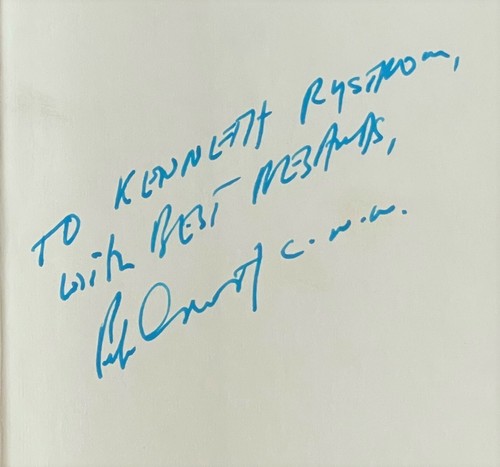 TO KENNETH RYSTROM,
with BEST REGARDS,
C. W. W.